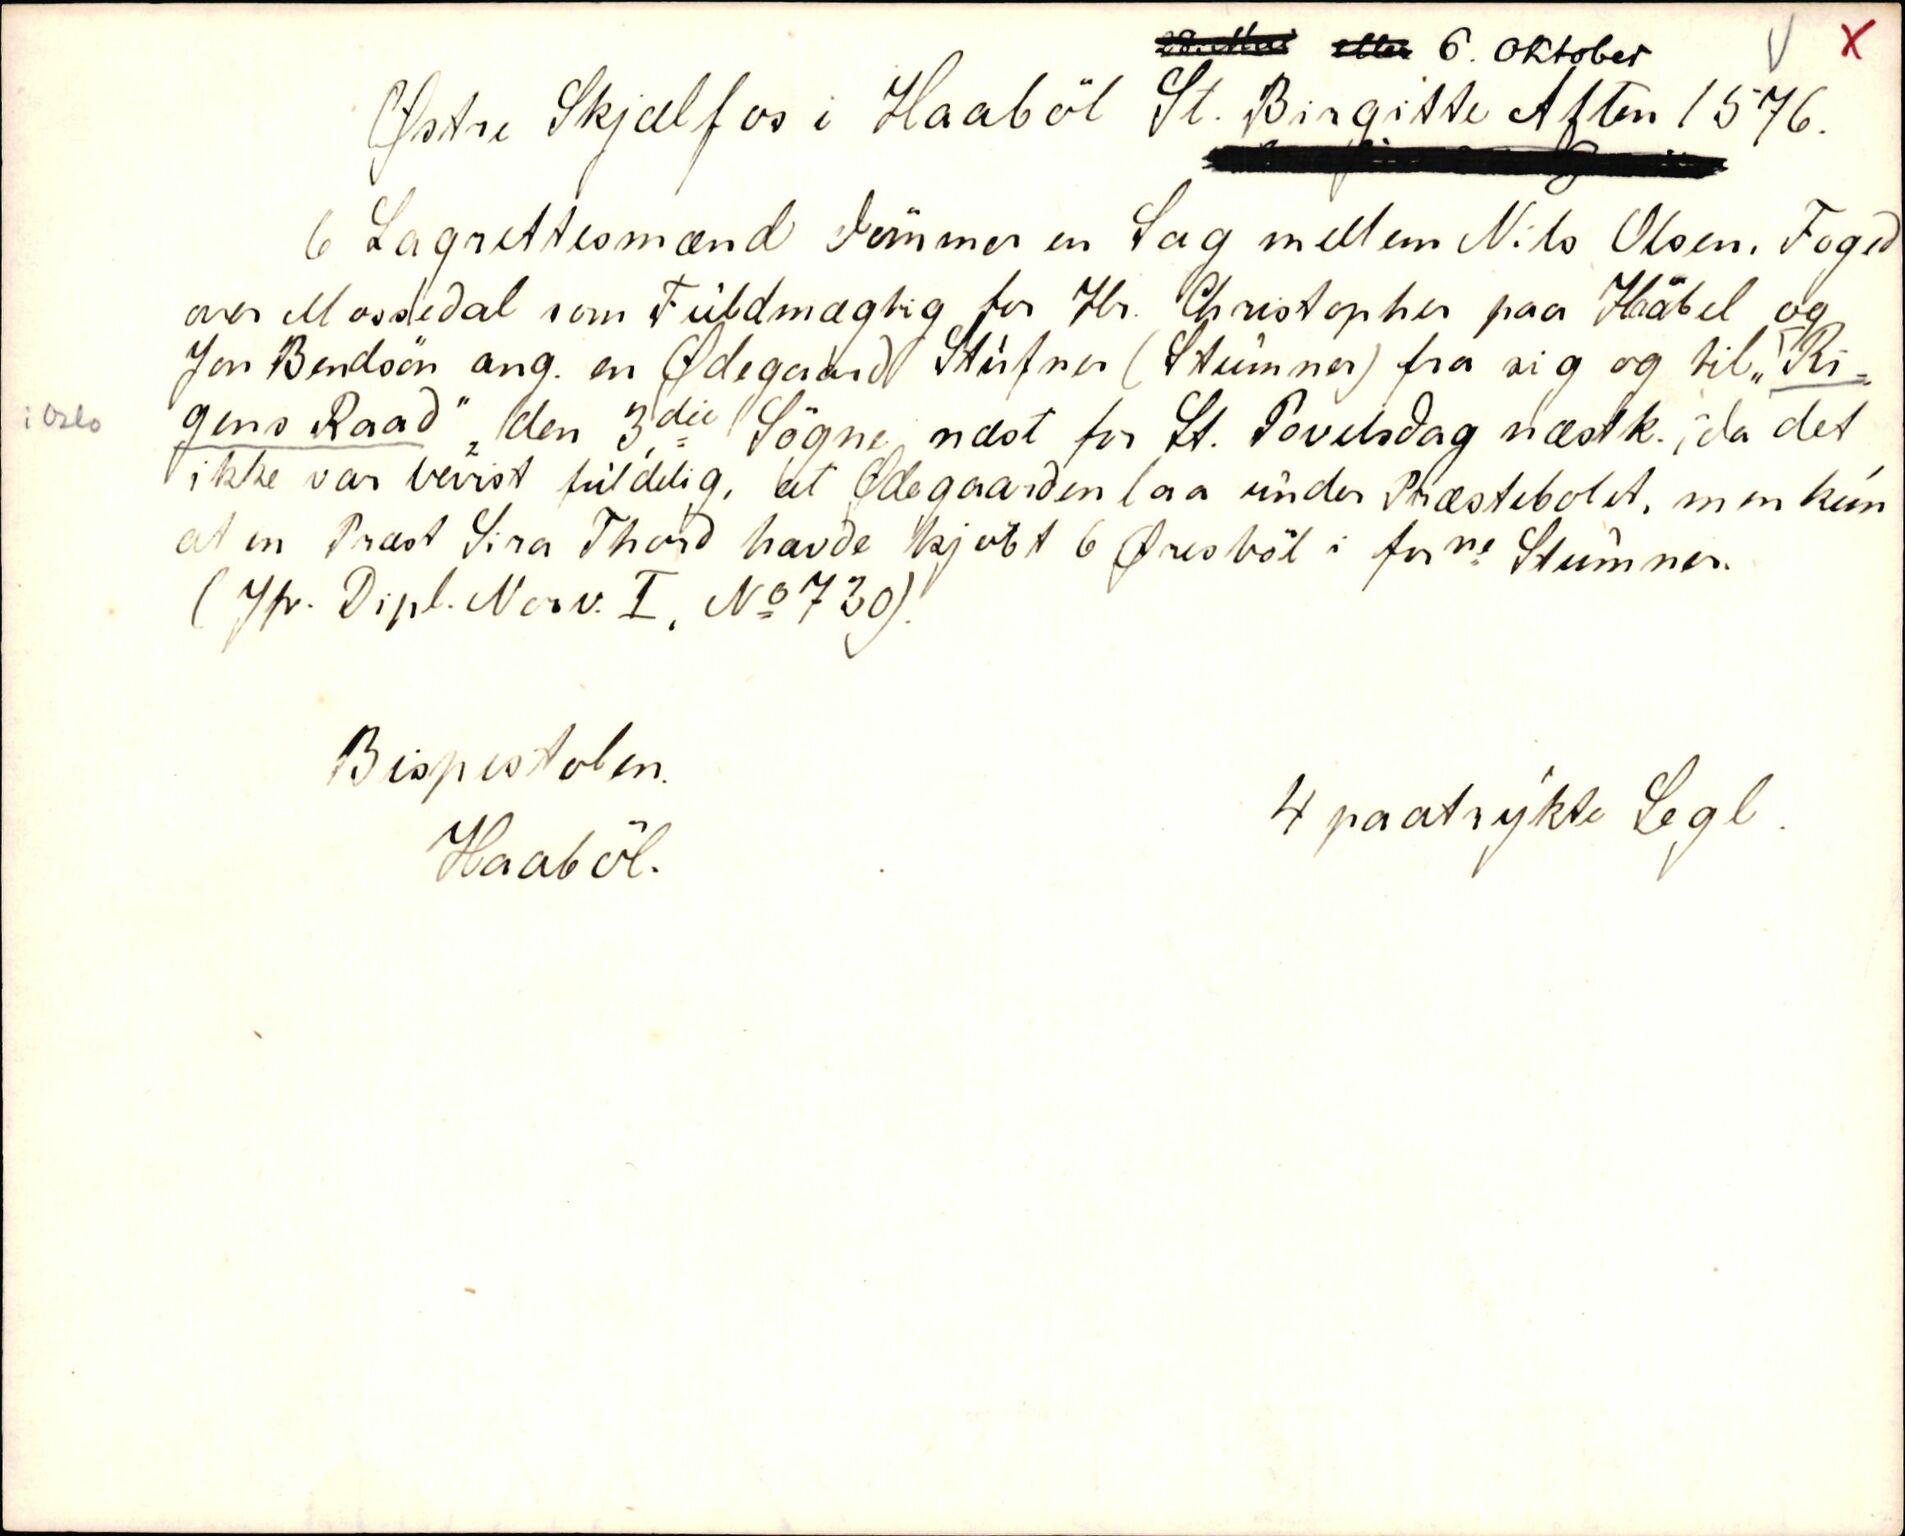 28. Mai eller 6. Oktober V X
Østre Skjælfos i Haaböl St. Birgitte Aften 1576.
6 Lagrettesmænd dömmer en Sag mellem Nils Olsen, Foged
over Mossedal som Fuldmægtig for Hr. Christopher paa Häbel og
Jon Bendsön ang. en Ødegaard Stufner (Stumner) fra sig og til „Ri=
i Oslo gens Raad“ den 3die Sögne næst for St. Povelsdag næstk., da det
ikke var bevist fuldelig, at Ødegaarden laa under Præstebolet, men kun
at en Præst Sira Thord havde kjøbt 6 Øresböl i forne Stumner.
(Jfr. Dipl. Norv. I, No 730).
Bispestolen.
Haaböl.
4 paatrykte Segl.